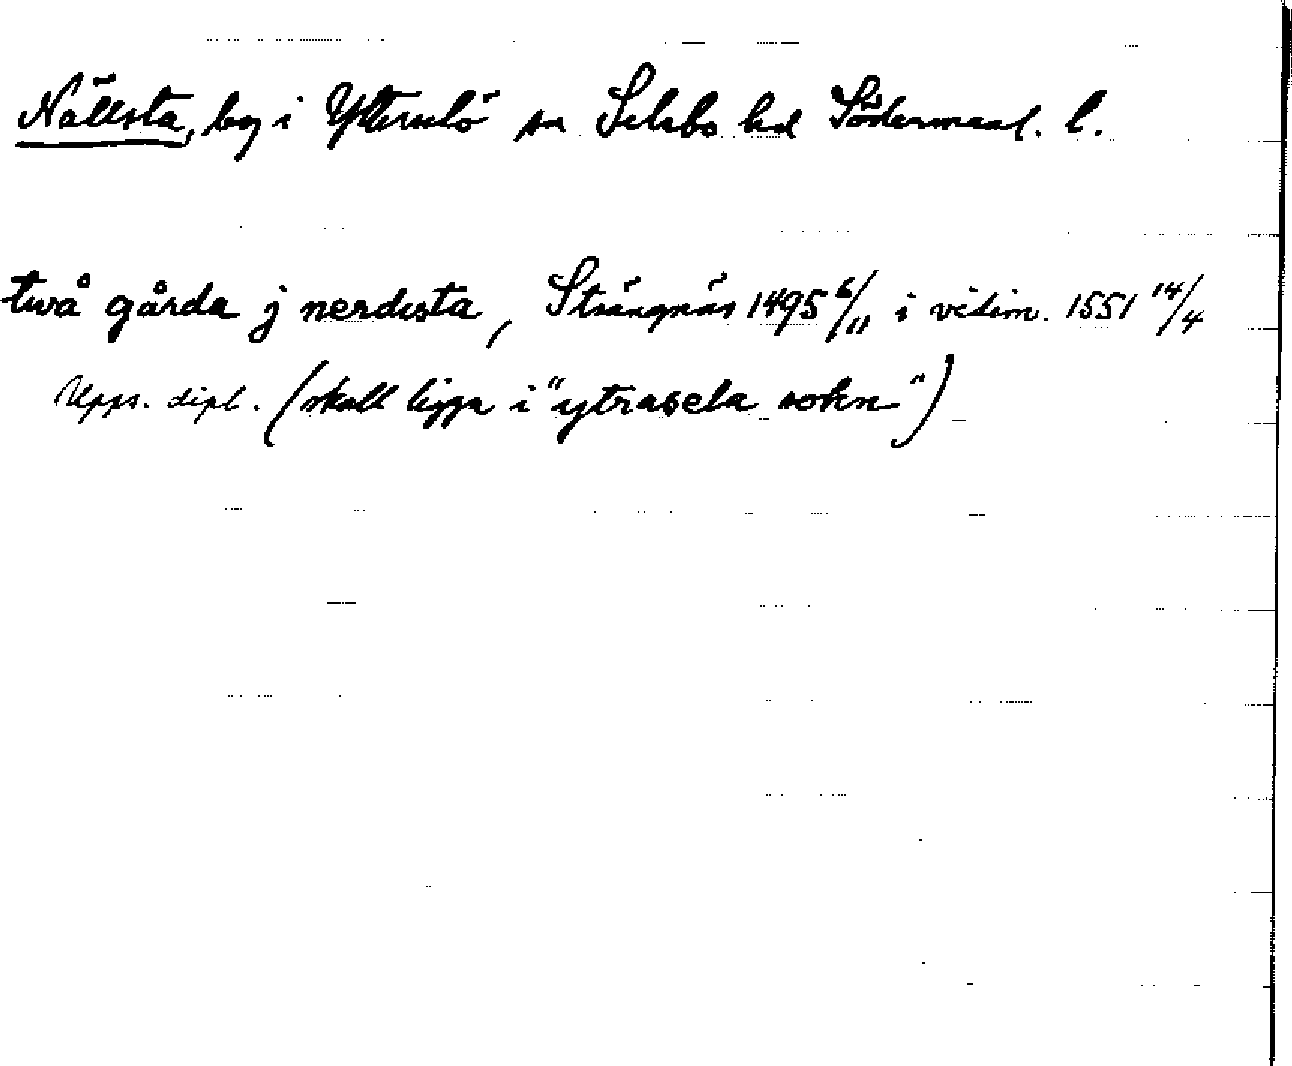 Nällsta, by i Ytterselö sn Selebo hd Södermanl. l.
två gårda j nerdesta, Strängnäs 1495 6/11 i vidim. 1551 14/4
Upps. dipl. (skall ligga i "ytrasela sokn")